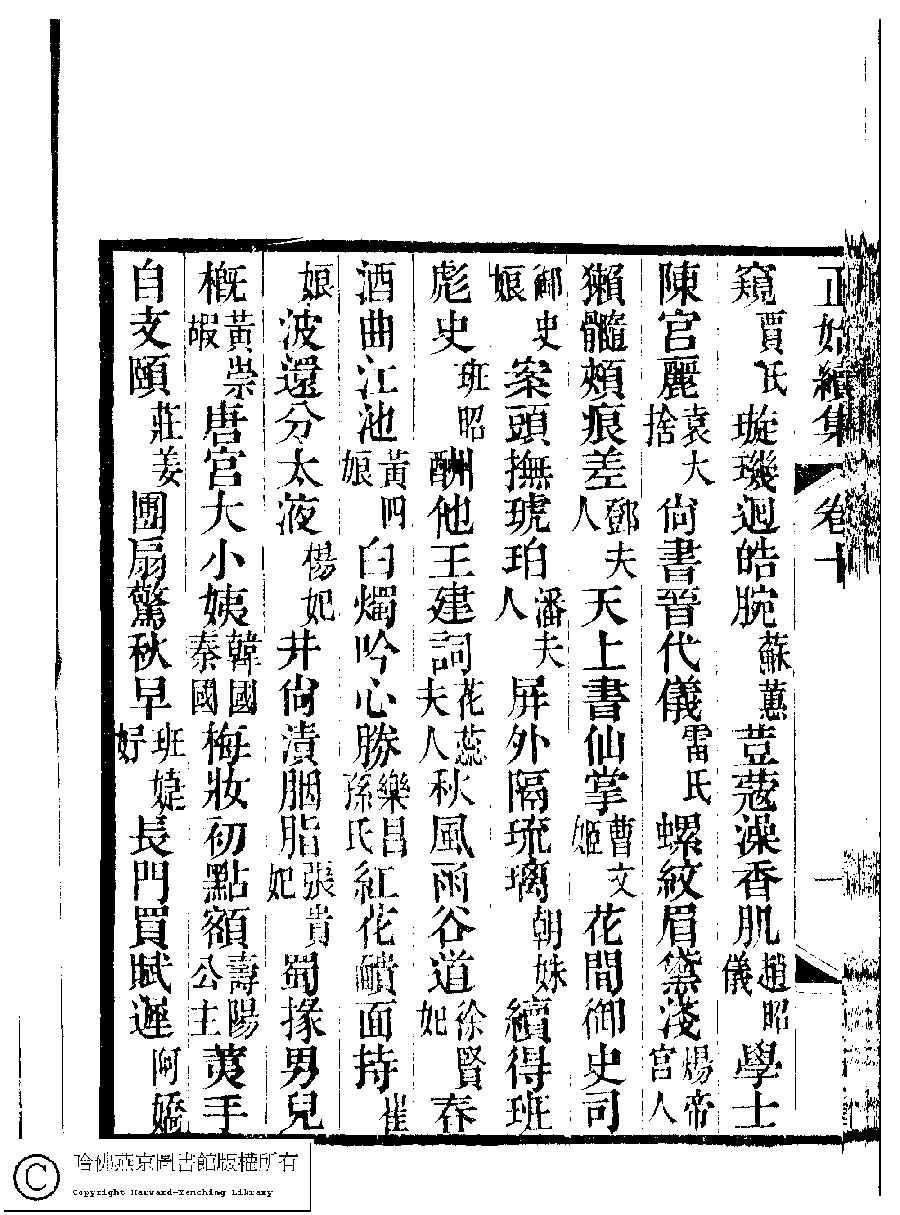 正始續集 卷十 一
窺賈氏璇璣迴皓腕蘇蕙荳蔻澡香肌趙昭儀學士
陳宮麗袁大捨尙書晉代儀雷氏螺紋眉黛淺煬帝宮人
獺髓頰痕差鄧夫人天上書仙掌曹文姬花間御史司
鄉史娘案頭撫琥珀潘夫人屏外隔琉璃朝姝續得班
彪史班昭酬他王建詞花蕊夫人秋風雨谷道徐賢妃春
酒曲江池黃四娘白燭吟心勝樂昌孫氏紅花靧面持崔
娘波還分太液楊妃井尙漬胭脂張貴妃蜀掾男兒
概黃崇嘏唐宮大小姨韓國秦國梅妝初點額壽陽公主荑手
自支頤莊姜團扇驚秋早班婕妤長門買賦遲阿嬌
哈佛燕京圖書館版權所有
Copyright Harvard-Yenching Library